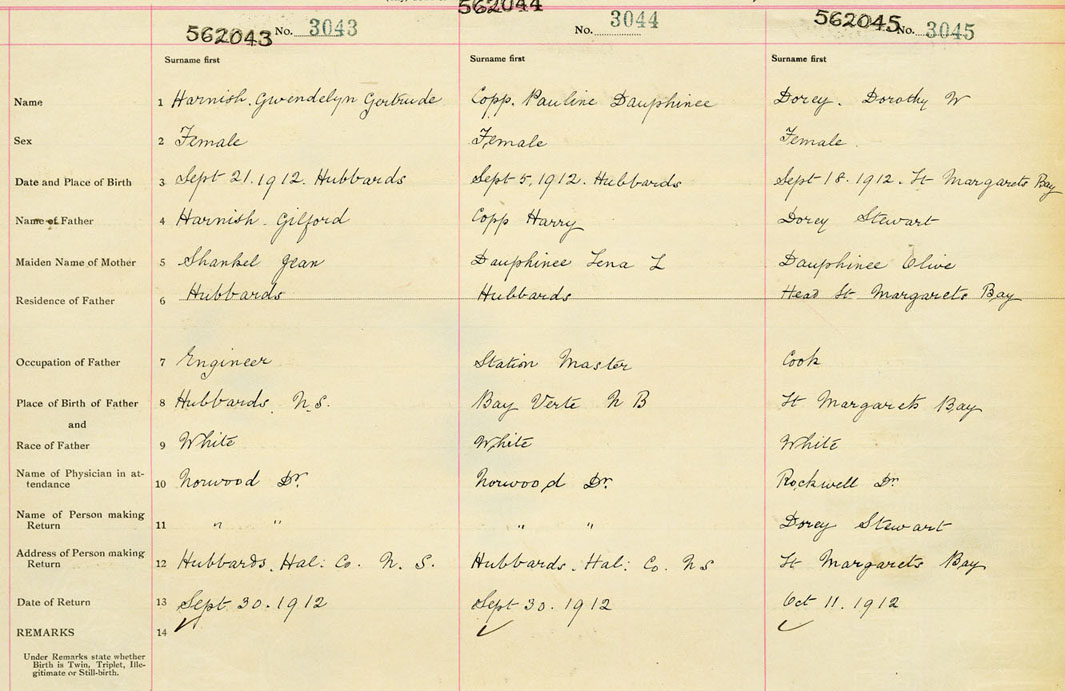 562043 No. 3043 562044 No. 3044 562045 No. 3045
Surname first Surname first Surname first
Name 1 Harnish. Gwendelyn Gertrude Copp. Pauline Dauphinee Dorey. Dorothy W
Sex 2 Female Female Female
Date and Place of Birth 3 Sept 21. 1912. Hubbards Sept 5, 1912. Hubbards Sept 18. 1912. St Margarets Bay
Name of Father 4 Harnish. Gilford Copp Harry Dorey Stewart
Maiden Name of Mother 5 Shankel Jean Dauphinee Lena L Dauphinee Olive
Residence of Father 6 Hubbards Hubbards Head St Margarets Bay
Occupation of Father 7 Engineer Station Master Cook
Place of Birth of Father 8 Hubbards N.S. Bay Verte N B St Margarets Bay
and
Race of Father 9 White White White
Name of Physician in at-
tendance 10 Norwood Dr. Norwood Dr. Rockwell Dr
Name of Person making
Return 11 " " " " Dorey Stewart
Address of Person making
Return 12 Hubbards. Hal: Co. N. S. Hubbards. Hal: Co. N S St Margarets Bay
Date of Return 13 Sept 30. 1912 Sept 30. 1912 Oct 11. 1912
REMARKS 14
Under Remarks state whether
Birth is Twin, Triplet, Ille-
gitimate or Still-birth.